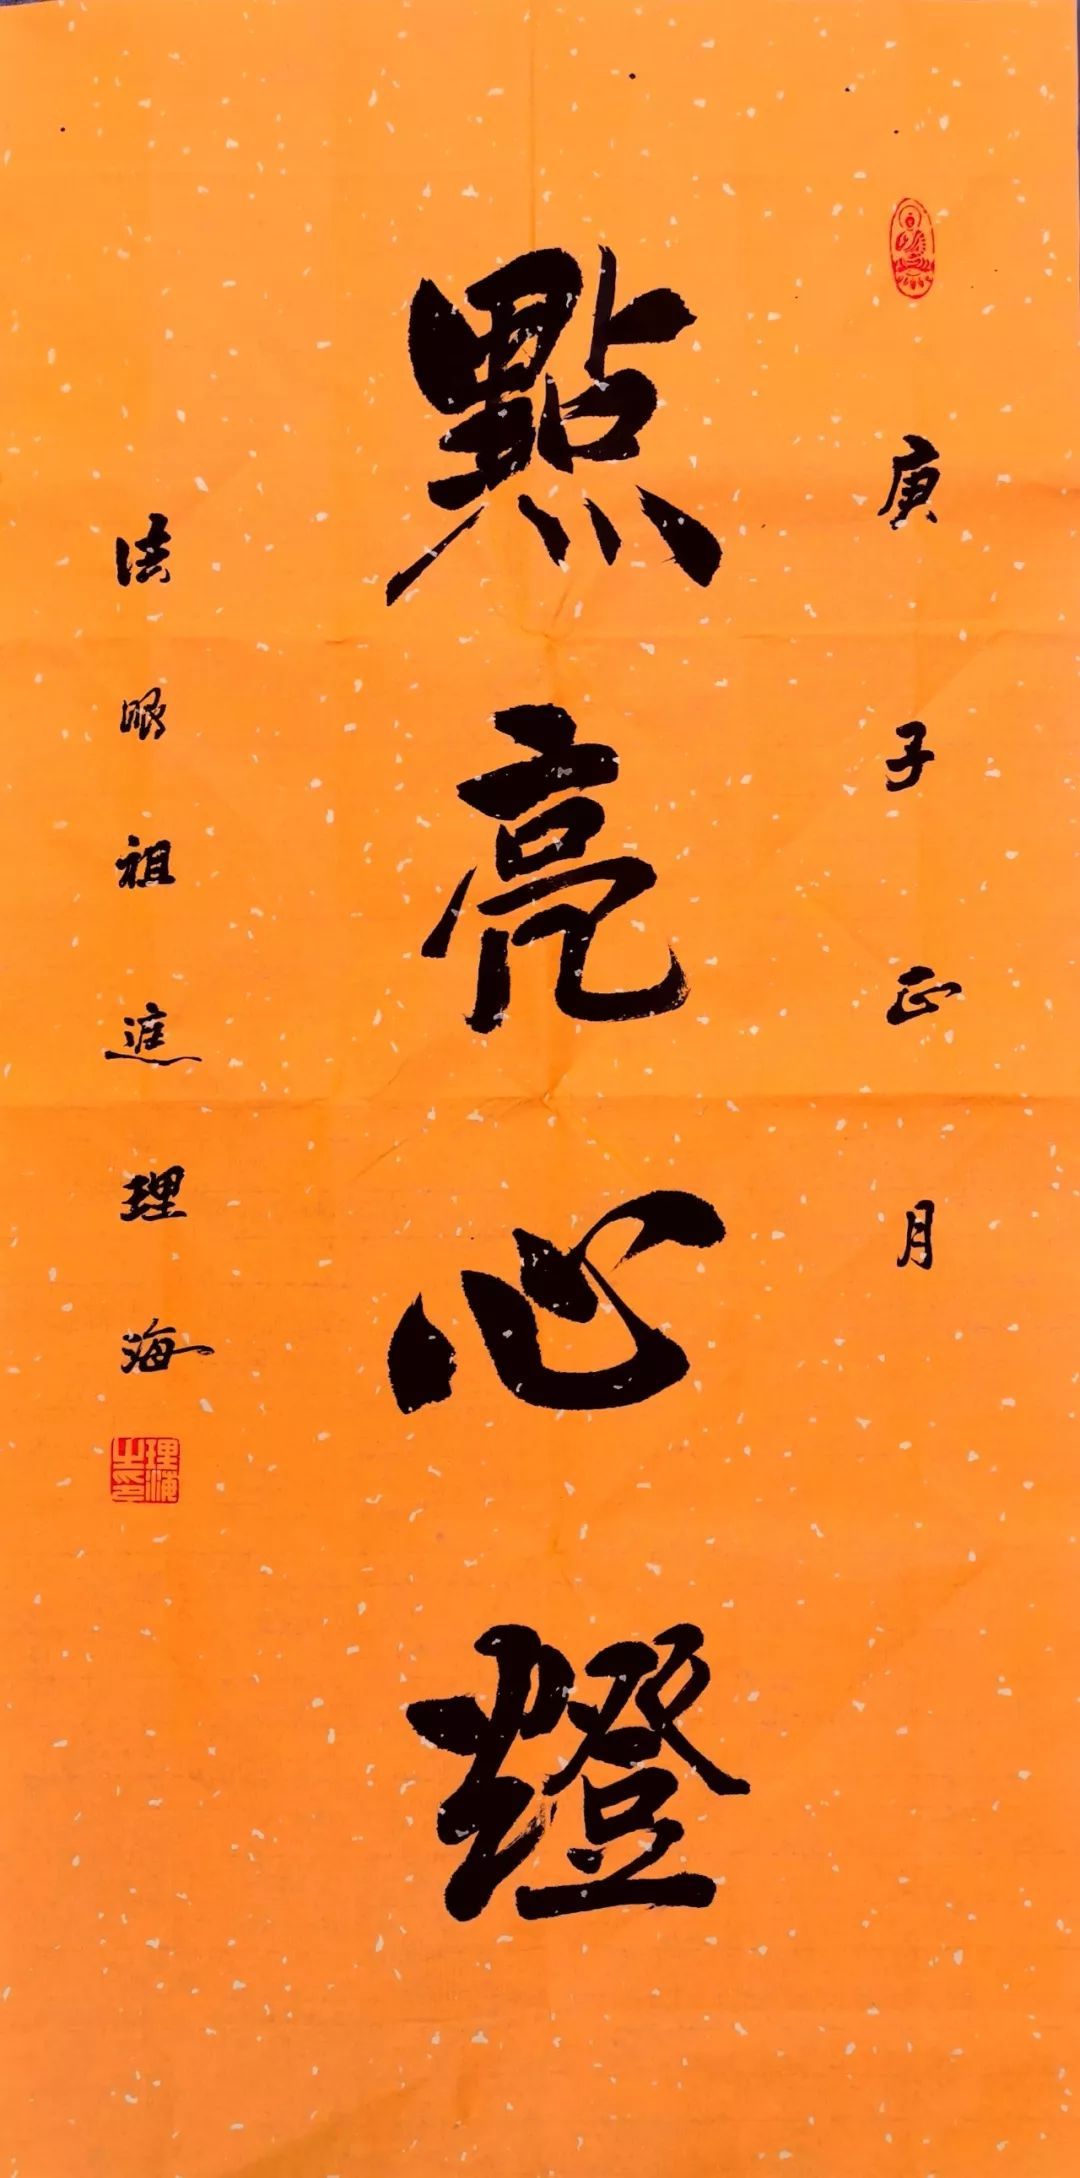 庚子正月
點亮心燈
法眼祖庭理海
理海之印